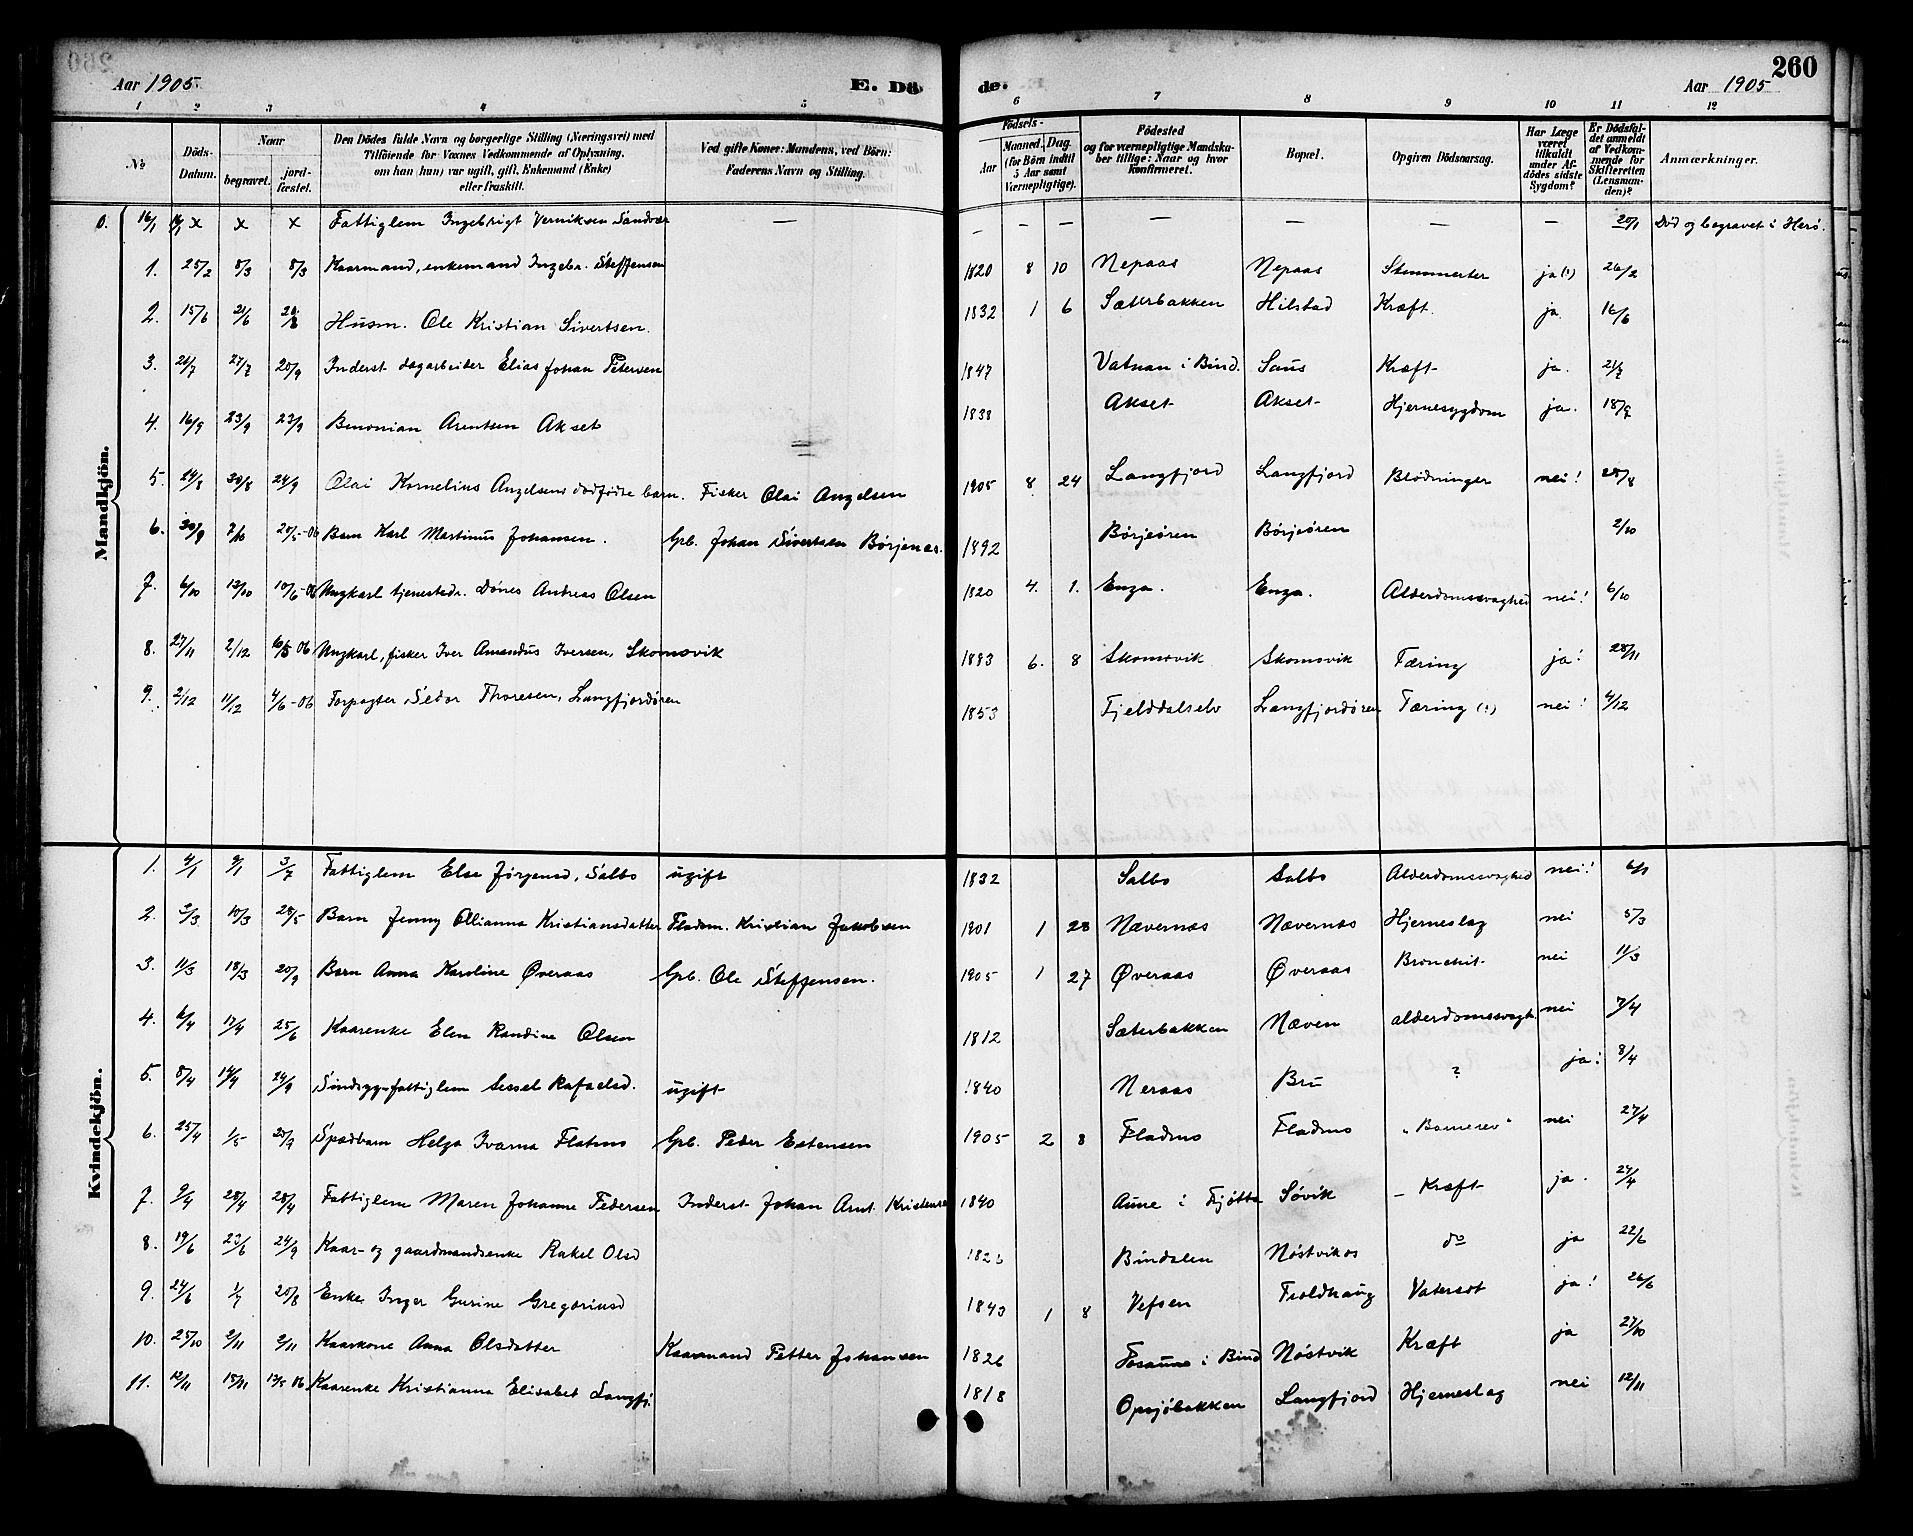 260
Aar 1905.
E. Dö
de.
Aar 1905
1 2 3 4 5 6 7 8 9 10 11 12
No
Döds-Datum.
Naar
begravet.
jord-fæstet.
Den Dödes fulde Navn og borgerlige Stilling (Næringsvei) med
Tilföiende for Voxnes Vedkommende af Oplysning,
om han (hun) var ugift, gift, Enkemand (Enke)
eller fraskilt.
Ved gifte Koner: Mandens, ved Börn:
Faderens Navn og Stilling.
Födsels-
Aar
Maaned, Dag
(for Börn indtil
5 Aar samt
Værnepligtige).
Födested
og for værnepligtige Mandska-
ber tillige: Naar og hvor
konfirmeret.
Bopæl.
Opgiven Dödsaarsag.
Har Læge
været
tilkaldt
under Af-
dödes sidste
Sygdom?
Er Dödsfal-
det anmeldt
af Vedkom-
mende for
Skifteretten
(Lensman-
den)?
Anmærkninger.
Mandkjön.
0. 16/1 x x x Fattiglem Ingebrigt Verniksen Sandvær — — — — — — — — 20/1 Död og begravet i Herö.
1. 25/2 8/3 8/3 Kaarmand, enkemand Ingebr. Steffensen 1820 8 10 Nepaas Nepaas ja (!) 26/2
2. 15/6 21/6 Husm. Ole Kristian Sivertsen. 1832 1 6 Sæterbakken Hilstad Kræft. ja. 16/6
3. 21/7 27/7 20/9 Inderst dagarbeider Elias Johan Petersen 1847 Vatnan i Bind. Saus Kræft- ja. 21/7
4. 16/9 23/9 23/9 Benonian Arentsen Akset 1838 Akset Akset Hjernesygdom ja. 18/9
5. 24/8 30/8 24/9 Olai Kornelius Angelsens dödfödte barn. Fisker Olai Angelsen 1905 8 24 Langfjord Langfjord Blödninger nei! 28/8
6. 30/9 7/10 20/5-06 Barn Karl Martinus Johansen. Gpb. Johan Sivertsen Börjeören. 1892 Börjeören Börjeören 2/10
7. 6/10 12/10 10/6-06 Ungkarl tjenestedr. Dönes Andreas Olsen 1820 4. 1. Enga. Enga. Alderdomssvaghed nei! 6/10
8. 27/11 2/12 06 Ungkarl, fisker Iver Amandus Iversen, Skomovik 1883 6. 8 Skomovik Skomovik Tæring ja! 28/11
9. 2/12 11/12 4/6-06 Forpagter Sedor Thoresen, Langfjordören 1853 Fjelddalselv Langfjordören Tæring (!) nei! 4/12
Kvindekjön.
1. 4/1 9/1 3/7 Fattiglem Else Jörgensd, Salbo ugift 1832 Salbo Salbo Alderdomssvaghed nei! 6/1
2. 2/3 10/3 28/5 Barn Jenny Ollianna Kristiansdatter Pladsm. Kristian Jakobsen 1901 1 28 Nævernæs Nævernæs Hjerneslag nei 5/3
3. 11/3 18/3 20/9 Barn Anna Karoline Øveraas Gpb. Ole Steffensen. 1905 1 27 Øveraas Øveraas Bronchit- nei 11/3
4. 6/4 17/4 25/6 Kaarenke Elen Randine Olsen 1812 Sæterbakken Næven alderdomssvagh. nei 7/4
5. 8/4 14/4 24/9 Sindssyg fattiglem Sessel Rafaelsd. ugift 1840 Neraas Bru ? ja! 8/4
6. 25/4 1/5 20/9 Spædbarn Helga Ivarna Flatmo Gpb. Peder Estensen 1905 2 8 Fladmo Fladmo nei 27/4
7. 9/4 28/4 28/4 Fattiglem Maren Johanne Pedersen Inderst Johan Arnt Kristensen 1840 Aune i Tjötta Sövik - Kræft ja. 24/4
8. 19/6 23/6 24/9 Kaar- og gaardmandsenke Rakel Olsd Bindalen Nöstvikos do ja 22/6
9. 24/6 1/7 20/8 Enke Inger Gurine Gregoriusd 1843 1 8 Vefsen Troldhaug Vatersot ja! 26/6
10. 25/10 2/11 2/11 Kaarkone Anna Olsdatter Kaarmand Petter Johansen 1826 Fosaune i Bind Nöstvik Kræft ja 27/10
11. 12/11 15/11 06 Kaarenke Kristianna Elisabet Langfj. 1818 Opsjöbakken Langfjord Hjerneslag nei 12/11